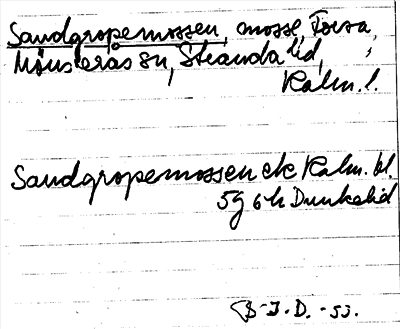 Sandgropemossen, mosse, Torsa,
Mönsterås sn, Stranda hd,
Kalm. l.
Sandgropemossen ek Kalm. bl.
5g 6h Dunkalid
B-I.D.-53.